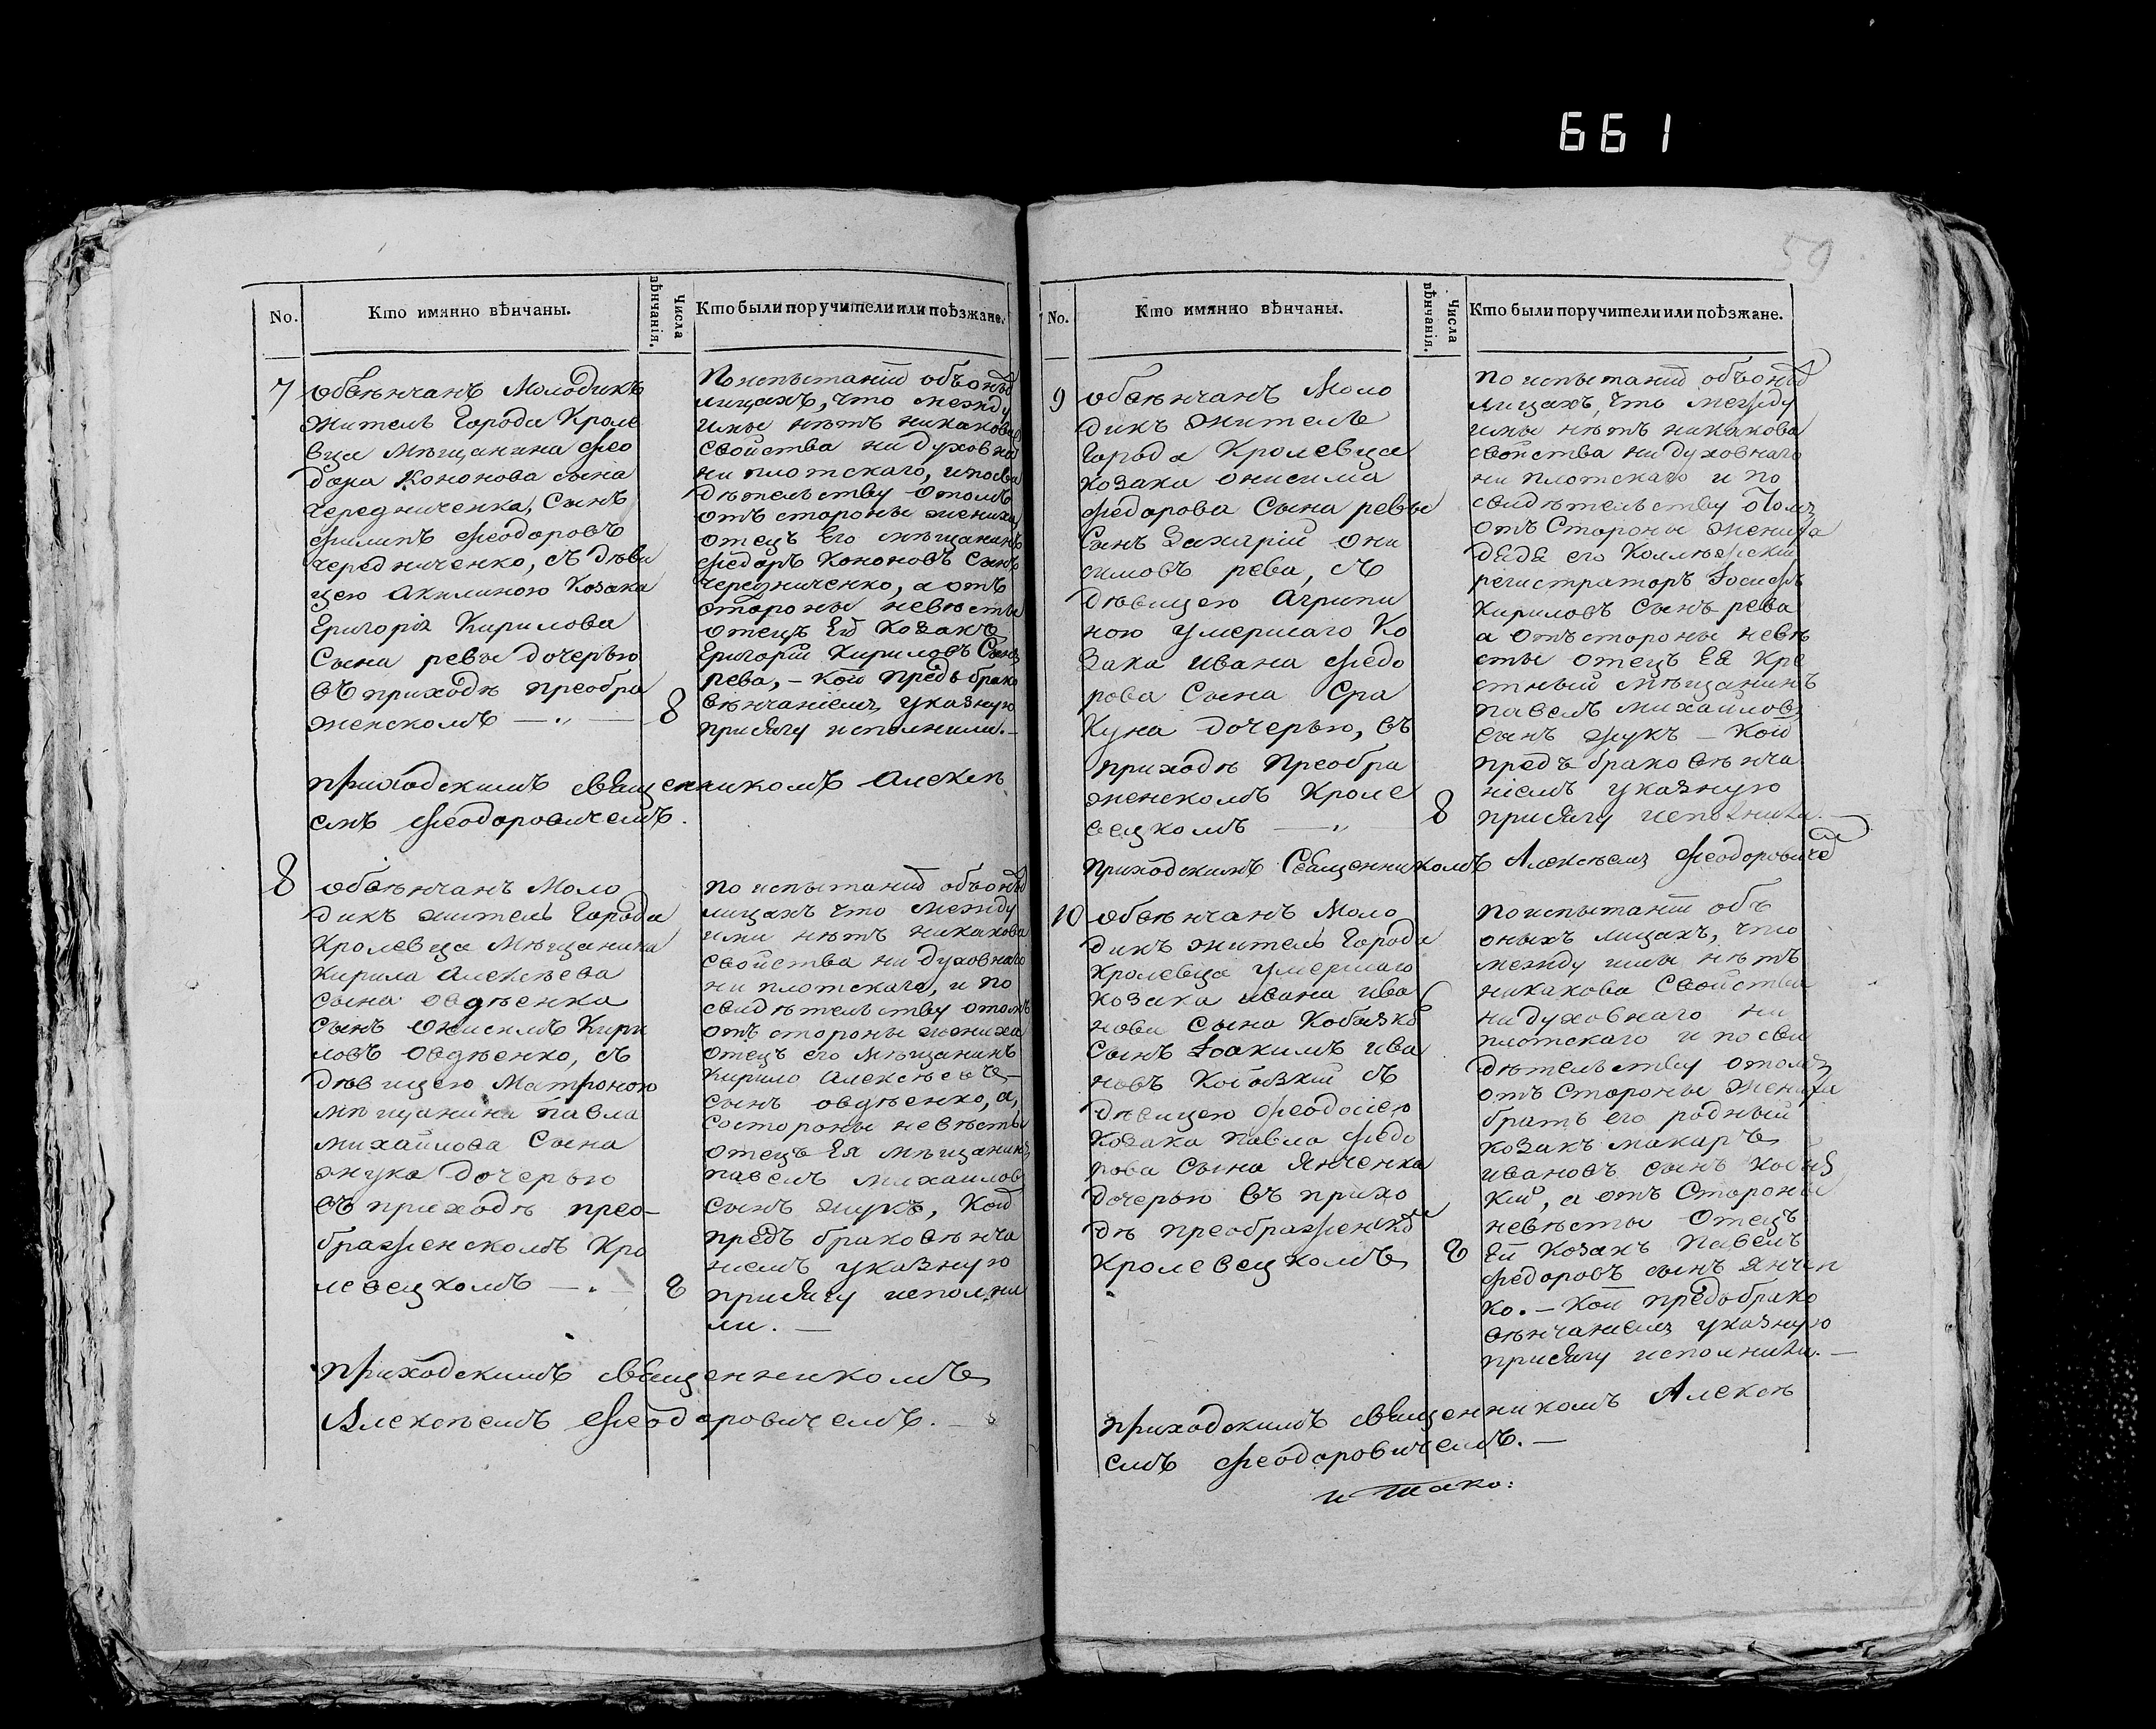 661
59
No.
Кто имянно вѣнчаны.
Числа вѣнчанія.
Кто были поручители или поѣзжане.
7
обвѣнчанъ Молодикъ
житель Города Кроле
вца Мѣщанина Фео
дора Кононова сына
Чередниченка, Сынъ
Филипъ Феодоровъ
Чередниченко, съ дѣви
цею Акилиною Козака
Григорія Кирилова
Сына ревы дочерью
въ приходѣ преобра
женскомъ — „ —
8
По испытаніи объ оныхъ
лицахъ, что между
ими нѣтъ никакова
свойства ни духовнаго
ни плотскаго, и по сви
дѣтельству отомъ
отъ стороны жениха
отецъ Его мѣщанинъ
Федоръ Кононовъ Сынъ
Чередниченко, а отъ
стороны невѣсты
отецъ Ей Козакъ
Григорій Кириловъ Сынъ
рева, – кои предъ брако
вѣнчаніемъ указную
присягу исполнили. –
приходскимъ священникомъ Алексѣ
емъ Феодоровичемъ.
8
обвѣнчанъ Моло
дикъ житель Города
Кролевца Мѣщанина
Кирила Алексѣева
Сына Овдѣенка
Сынъ Онисимъ Кири
ловъ Овдѣенко, съ
дѣвицею Матроною
мѣщанина Павла
Михайлова Сына
жука дочерью
въ приходѣ прео-
браженскомъ Кро
левецкомъ — . —
8
по испытаніи объ оныхъ
лицахъ что между
ими нѣтъ никакова
свойства ни духовнаго
ни плотскаго, и по
свидѣтельству отомъ
отъ стороны жениха
отецъ его Мѣщанинъ
Кирило Алексѣевъ
сынъ овдѣенко, а,
состороны невѣсты
отецъ Ея мѣщанинъ
павелъ михайловъ
сынъ жукъ, Кои
предъ браковѣнча
ніемъ указную
присягу исполни
ли. —
приходскимъ священникомъ
Алексѣемъ Феодоровичемъ. —
No.
Кто имянно вѣнчаны.
Числа вѣнчанія.
Кто были поручители или поѣзжане.
9
обвѣнчанъ Моло
дикъ житель
Города Кролевца
козака онисима
Федорова Сына ревы
Сынъ Захарій они
симовъ рева, съ
дѣвицею Агрипи
ною умершаго Ко
зака ивана Федо
рова Сына Сра
Куна дочерью, въ
приходѣ Преобра
женскомъ Кроле
вецкомъ — „ —
8
по испытаніи объ оныхъ
лицахъ, что между
ими нѣтъ никакова
свойства ни духовнаго
ни плотскаго и по
свидѣтельству отомъ
отъ Стороны жениха
дядя его Коллѣжскій
регистраторъ Іосифъ
Кириловъ Сынъ рева
а отъ стороны невѣ
сты отецъ Ея Кре
стный мѣщанинъ
павелъ михайловъ
сынъ жукъ – Кои
предъ браковѣнча
ніемъ указную
присягу исполнили. —
приходскимъ Священникомъ Алексѣемъ Феодоровичемъ
10
обвѣнчанъ Моло
дикъ житель Города
Кролевца умершаго
козака ивана ива
нова сына Кобызкого
Сынъ Іоакимъ ива
новъ Кобызкій съ
дѣвицею Феодосіею
Козака Павла Федо
рова Сына Янченка
дочерью въ прихо
дѣ преображенском
Кролевецкомъ
8
По испытаніи объ
оныхъ лицахъ, что
между ими нѣтъ
никакова Свойства
ни духовнаго ни
плотскаго и по сви
дѣтельству отомъ
отъ Стороны жениха
братъ его родный
козакъ макаръ
ивановъ сынъ кобыз
кій, а отъ Стороны
невѣсты Отецъ
Ей Козакъ Павелъ
Федоровъ сынъ Янчен
ко. – Кои предъ брако
вѣнчаніемъ указную
присягу исполнили. —
приходскимъ священникомъ Алексѣ
емъ Феодоровичемъ. —
итако: